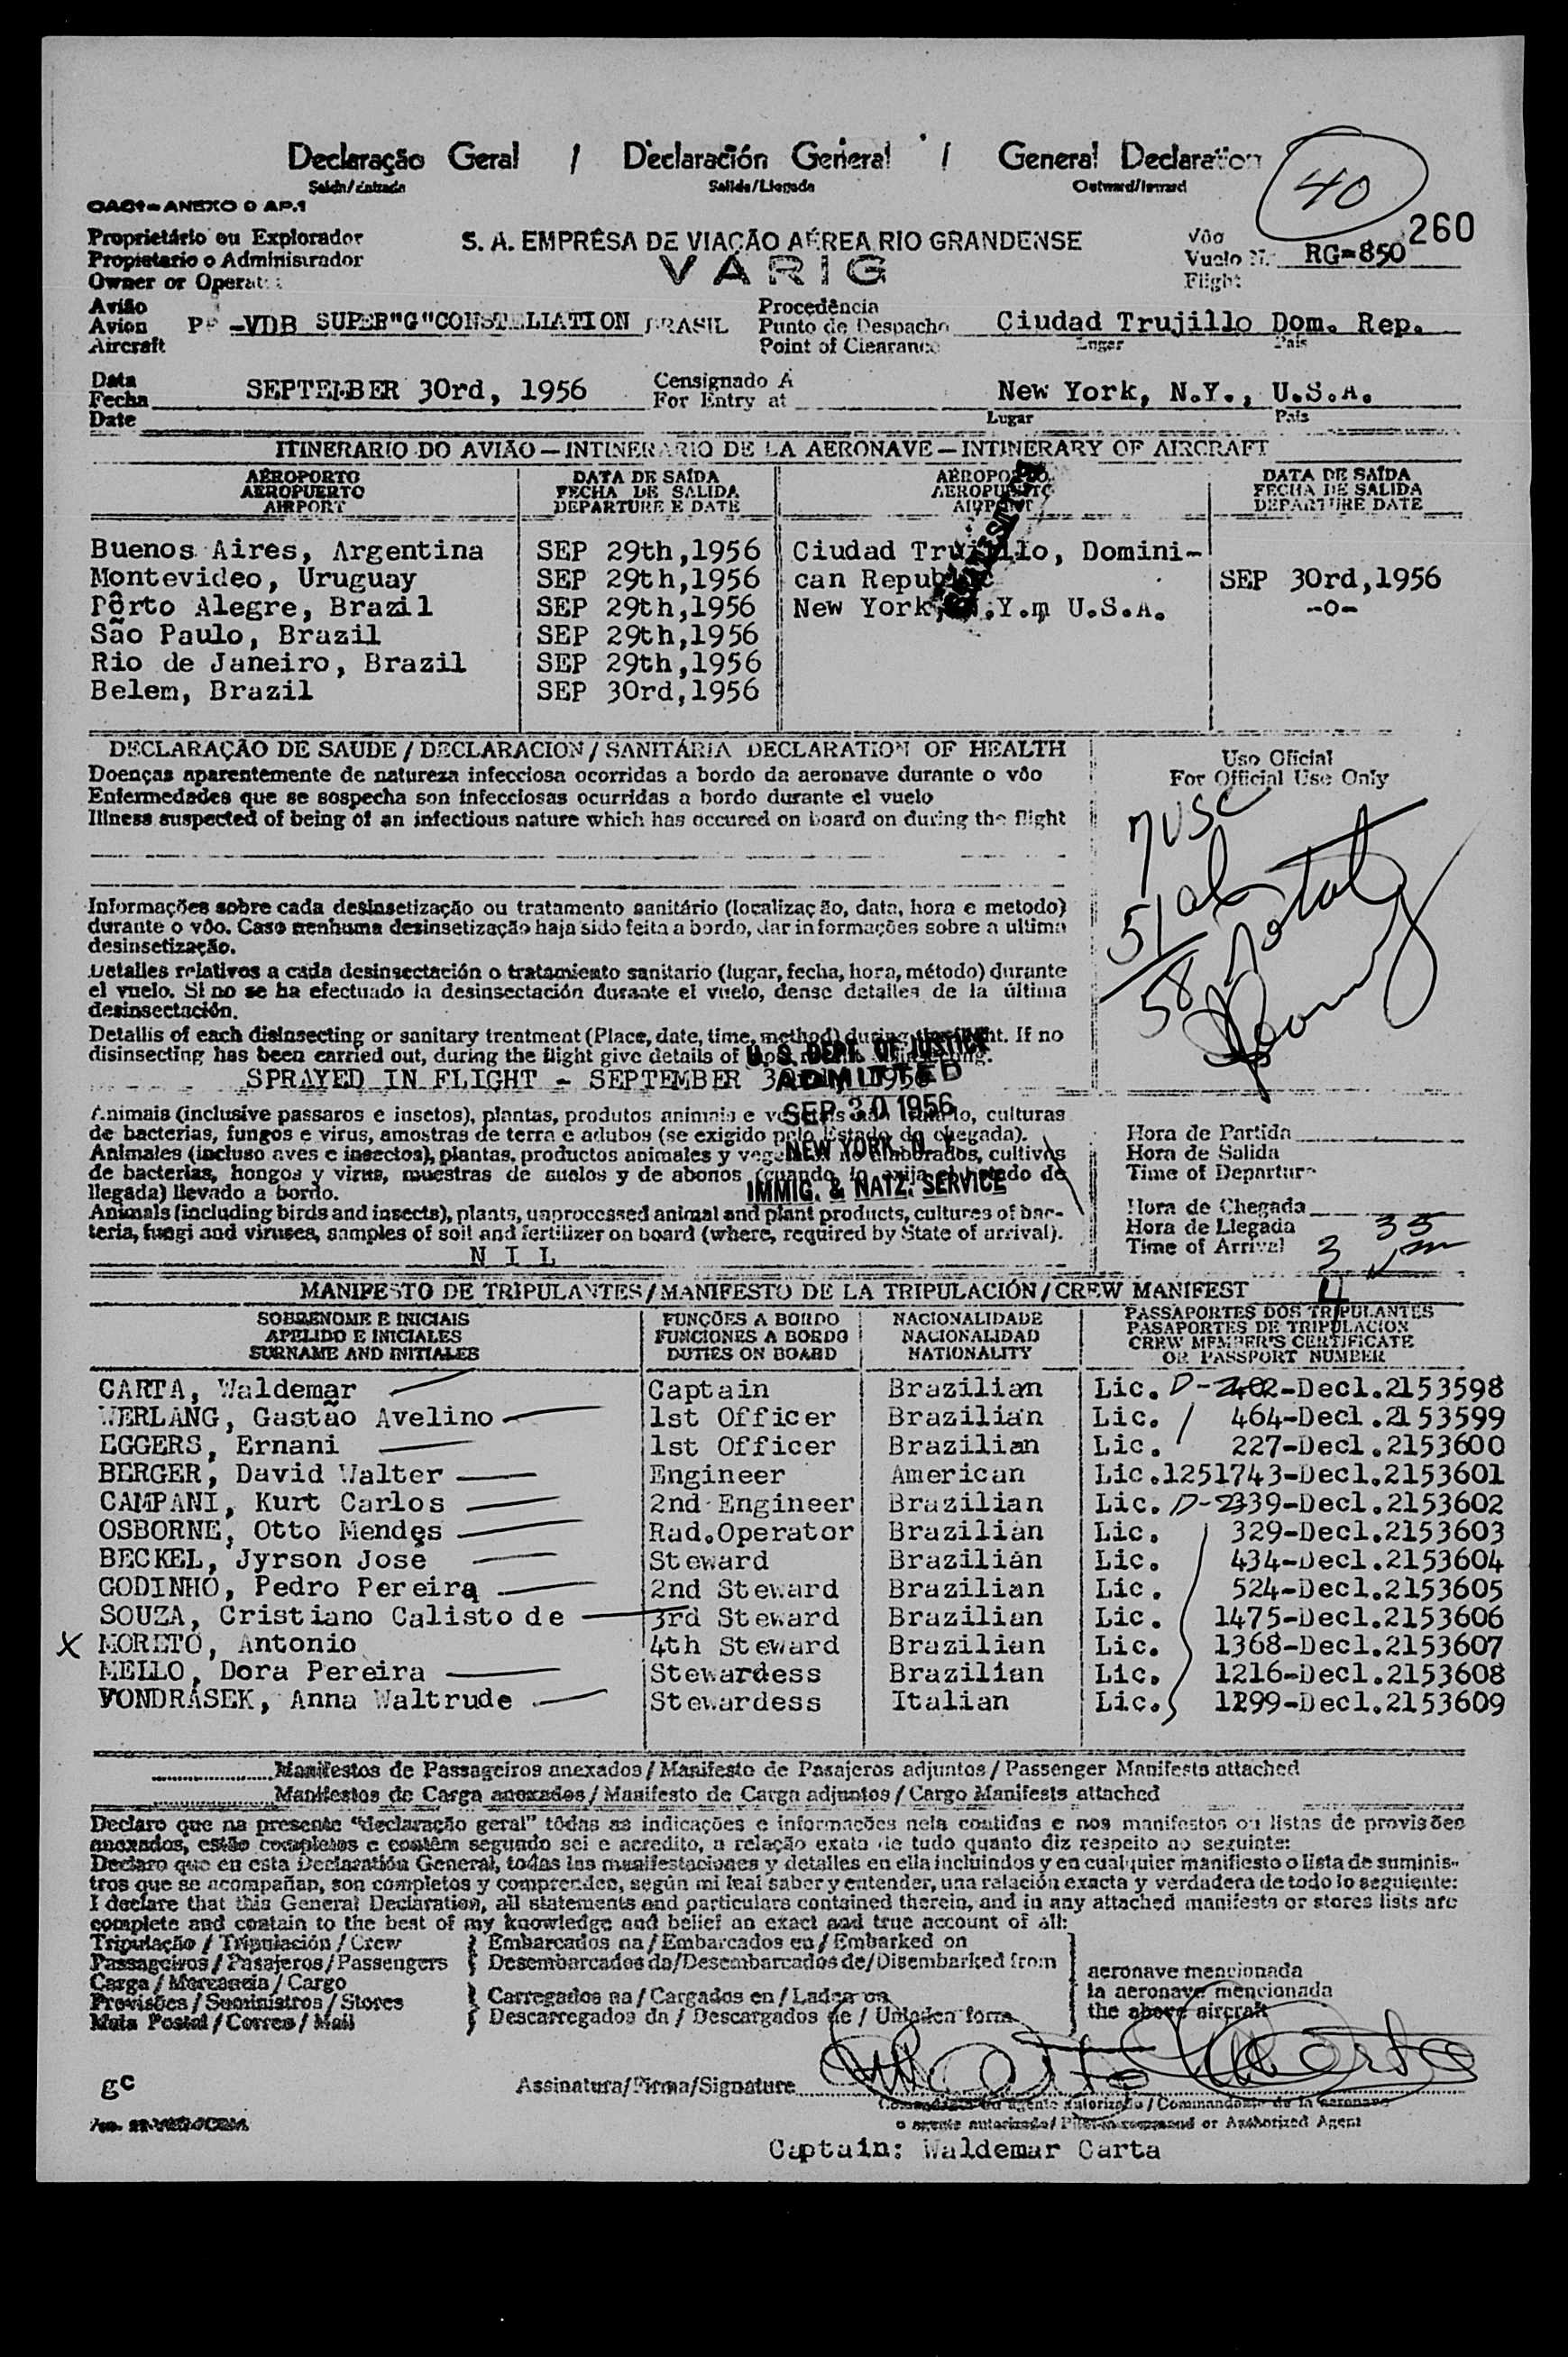 Declaração Geral / Declaración General / General Declaration
Saída/Entrada Salida/Llegada Outward/Inward
40
OACI-ANEXO 9 AP.1
260
Proprietário ou Explorador
Propietario o Administrador
Owner or Operator
S. A. EMPRÊSA DE VIAÇÃO AÉREA RIO GRANDENSE
VARIG
Vôo
Vuelo N.
Flight
RG-850
Avião
Avion
Aircraft
PP -VDB SUPER"G"CONSTELLATION BRASIL
Procedência
Punto de Despacho
Point of Clearance
Ciudad Trujillo Dom. Rep.
Lugar País
Data
Fecha
Date
SEPTEMBER 30rd, 1956
Censignado A
For Entry at
New York, N.Y., U.S.A.
Lugar País
ITINERARIO DO AVIÃO — INTINERARIO DE LA AERONAVE — INTINERARY OF AIRCRAFT
AÉROPORTO
AEROPUERTO
AIRPORT
DATA DE SAÍDA
FECHA DE SALIDA
DEPARTURE E DATE
AÉROPORTO
AEROPUERTO
AIRPORT
DATA DE SAÍDA
FECHA DE SALIDA
DEPARTURE DATE
Buenos Aires, Argentina SEP 29th,1956 Ciudad Trujillo, Domini-
Montevideo, Uruguay SEP 29th,1956 can Republic SEP 30rd,1956
Pôrto Alegre, Brazil SEP 29th,1956 New York, N.Y.m U.S.A. -o-
São Paulo, Brazil SEP 29th,1956
Rio de Janeiro, Brazil SEP 29th,1956
Belem, Brazil SEP 30rd,1956
DECLARAÇÃO DE SAUDE / DECLARACION / SANITÁRIA DECLARATION OF HEALTH
Doenças aparentemente de natureza infecciosa ocorridas a bordo da aeronave durante o vôo
Enfermedades que se sospecha son infecciosas ocurridas a bordo durante el vuelo
Illness suspected of being of an infectious nature which has occured on board on during the flight
Uso Oficial
For Official Use Only
7 USC
51 al
58 total
Informações sobre cada desinsetização ou tratamento sanitário (localização, data, hora e metodo)
durante o vôo. Caso nenhuma desinsetização haja sido feita a bordo, dar informações sobre a ultima
desinsetização.
Detalles relativos a cada desinsectación o tratamiento sanitario (lugar, fecha, hora, método) durante
el vuelo. Si no se ha efectuado la desinsectación durante el vuelo, dense detalles de la última
desinsectación.
Detallis of each disinsecting or sanitary treatment (Place, date, time, method) during the flight. If no
disinsecting has been carried out, during the flight give details of most recent disinsecting.
SPRAYED IN FLIGHT - SEPTEMBER 30rd, 1956
U. S. DEPT. OF JUSTICE
ADMITTED
SEP 30 1956
NEW YORK, N. Y.
IMMIG. & NATZ. SERVICE
Animais (inclusive passaros e insetos), plantas, produtos animais e vegetais culturas
de bacterias, fungos e virus, amostras de terra e adubos (se exigido pelo Estado de chegada).
Animales (incluso aves e insectos), plantas, productos animales y vegetales no elaborados, cultivos
de bacterias, hongos y virus, muestras de suelos y de abonos (cuando lo exija el Estado de
llegada) llevado a bordo.
Animals (including birds and insects), plants, unprocessed animal and plant products, cultures of bac-
teria, fungi and viruses, samples of soil and fertilizer on board (where, required by State of arrival).
N I L
Hora de Partida
Hora de Salida
Time of Departure
Hora de Chegada
Hora de Llegada
Time of Arrival
3 35 pm
4
MANIFESTO DE TRIPULANTES / MANIFESTO DE LA TRIPULACIÓN / CREW MANIFEST
SOBRENOME E INICIAIS
APELIDO E INICIALES
SURNAME AND INITIALES
FUNÇÕES A BORDO
FUNCIONES A BORDO
DUTIES ON BOARD
NACIONALIDADE
NACIONALIDAD
NATIONALITY
PASSAPORTES DOS TRIPULANTES
PASAPORTES DE TRIPULACION
CREW MEMBER'S CERTIFICATE
OR PASSPORT NUMBER
CARTA, Waldemar Captain Brazilian Lic. D-402-Decl.2153598
WERLANG, Gastão Avelino 1st Officer Brazilian Lic. 464-Decl.2153599
EGGERS, Ernani 1st Officer Brazilian Lic. 227-Decl.2153600
BERGER, David Walter Engineer American Lic.1251743-Decl.2153601
CAMPANI, Kurt Carlos 2nd Engineer Brazilian Lic. D-2339-Decl.2153602
OSBORNE, Otto Mendes Rad.Operator Brazilian Lic. 329-Decl.2153603
BECKEL, Jyrson Jose Steward Brazilian Lic. 434-Decl.2153604
GODINHO, Pedro Pereira 2nd Steward Brazilian Lic. 524-Decl.2153605
SOUZA, Cristiano Calisto de 3rd Steward Brazilian Lic. 1475-Decl.2153606
X MORETO, Antonio 4th Steward Brazilian Lic. 1368-Decl.2153607
MELLO, Dora Pereira Stewardess Brazilian Lic. 1216-Decl.2153608
VONDRÁSEK, Anna Waltrude Stewardess Italian Lic. 1299-Decl.2153609
Manifestos de Passageiros anexados / Manifesto de Pasajeros adjuntos / Passenger Manifests attached
Manifestos de Carga anexados / Manifesto de Carga adjuntos / Cargo Manifests attached
Declaro que na presente "declaração geral" tôdas as indicações e informações nela contidas e nos manifestos ou listas de provisões
anexados, estão completos e contêm segundo sei e acredito, a relação exata de tudo quanto diz respeito ao seguinte:
Declaro que en esta Declaratión General, todas las manifestaciones y detalles en ella incluindos y en cualquier manifiesto o lista de suminis-
tros que se acompañan, son completos y comprenden, según mi leal saber y entender, una relación exacta y verdadera de todo lo seguiente:
I declare that this General Declaration, all statements and particulars contained therein, and in any attached manifests or stores lists are
complete and contain to the best of my knowledge and belief an exact and true account of all:
Tripulação / Tripulación / Crew
Passageiros / Pasajeros / Passengers
Carga / Mercancia / Cargo
Provisões / Suministros / Stores
Mala Postal / Correo / Mail
Embarcados na / Embarcados en / Embarked on
Desembarcados da/Desembarcados de/Disembarked from
Carregados na / Cargados en / Laden on
Descarregados da / Descargados de / Unladen form
aeronave mencionada
la aeronave mencionada
the above aircraft
gc
Assinatura/Firma/Signature
Comandante ou agente autorizado / Commandante de la aeronave
o agente autorizado / Pilot in command or Authorized Agent
Captain: Waldemar Carta